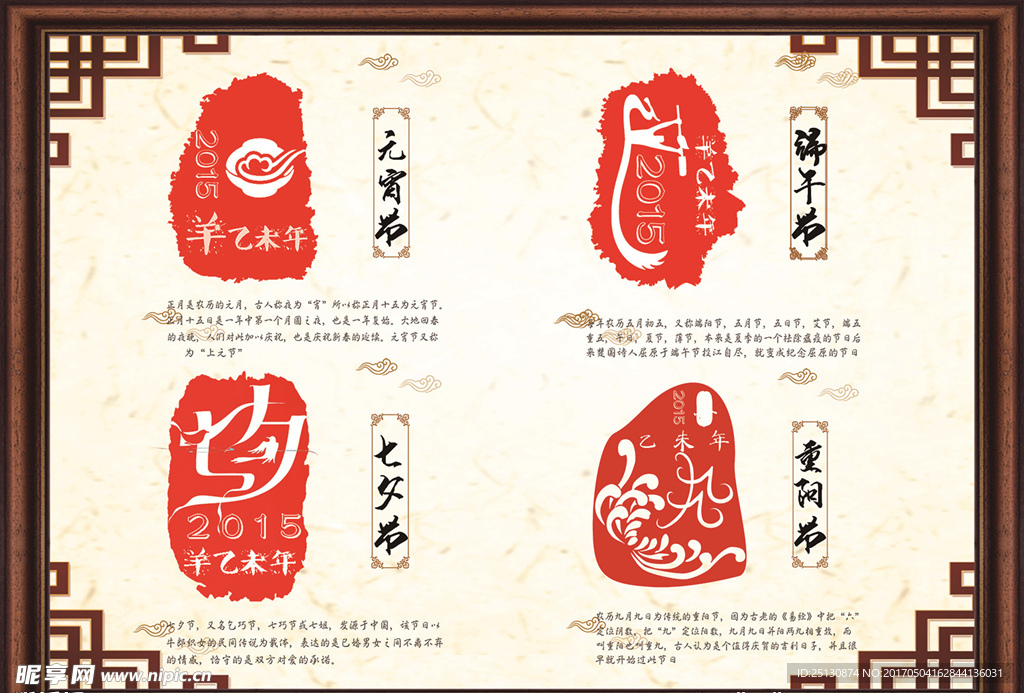 2015
羊乙未年
元宵节
正月是农历的元月，古人称夜为“宵”所以称正月十五为元宵节。
正月十五日是一年中第一个月圆之夜，也是一年复始，大地回春
的夜晚，人们对此加以庆祝，也是庆祝新春的延续。元宵节又称
为“上元节”
2015
羊乙未年
端午节
每年农历五月初五，又称端阳节，五月节，五日节，艾节，端五
重五，午日，夏节，蒲节，本来是夏季的一个祛除瘟疫的节日后
来楚国诗人屈原于端午节投江自尽，就变成纪念屈原的节日
七夕
2015
羊乙未年
七夕节
七夕节，又名乞巧节，七巧节或七姐，发源于中国，该节日以
牛郎织女的民间传说为载体，表达的是已婚男女之间不离不弃
的情感，恪守的是双方对爱的承诺。
2015
乙未年
九九
重阳节
农历九月九日为传统的重阳节，因为古老的《易经》中把“六”
定位阴数，把“九”定位阳数，九月九日并阳两九相重故，而
叫重阳也叫重九，古人认为是个值得庆贺的吉利日子，并且很
早就开始过此节日
昵享网 www.nipic.cn
ID:25130874 NO:20170504162844136031